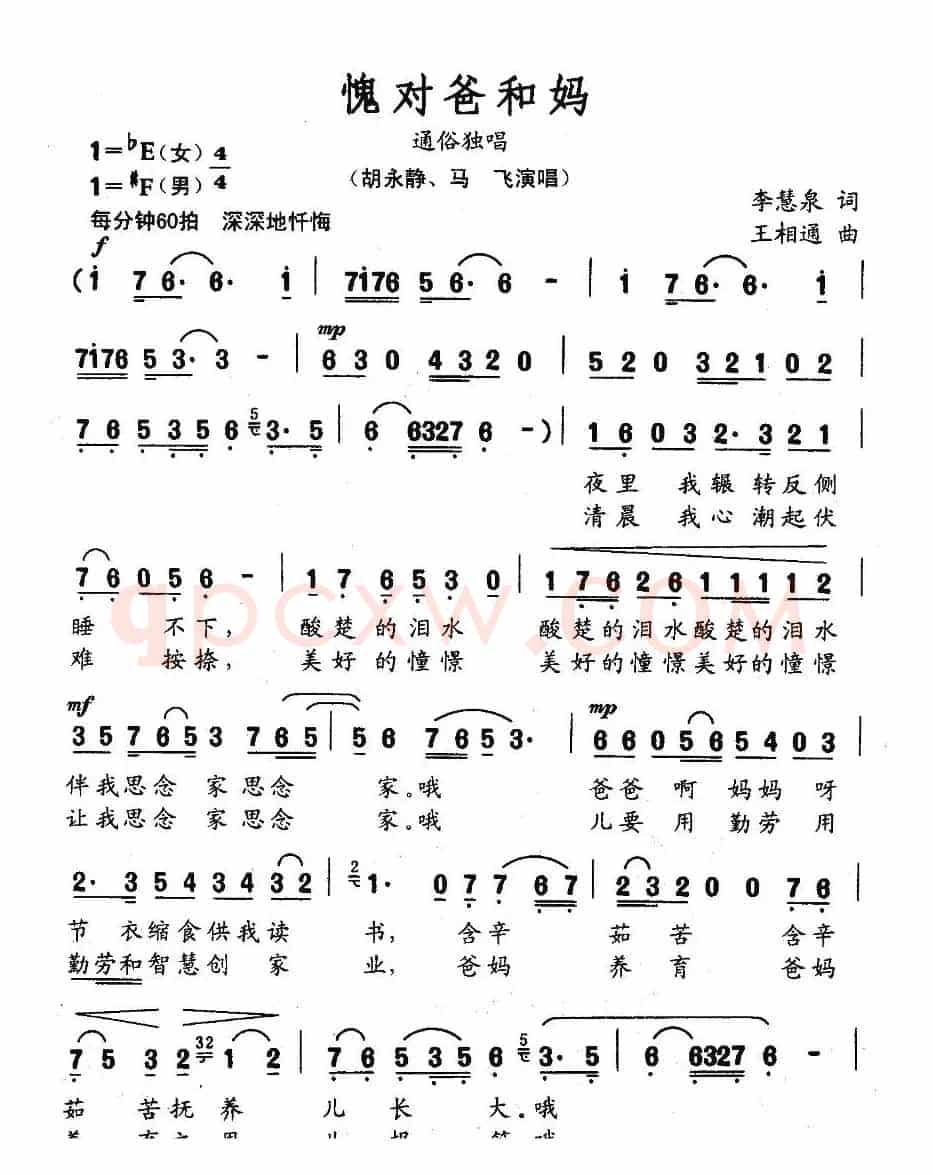 愧对爸和妈
通俗独唱
1=♭E(女) 4/4
1=#F(男)
(胡永静、马 飞演唱)
每分钟60拍 深深地忏悔
李慧泉 词
王相通 曲
f
(i 7 6· 6· i | 7i76 5 6· 6 - | i 7 6· 6· i |
mp
7i76 5 3· 3 - | 6 3 0 4 3 2 0 | 5 2 0 3 2 1 0 2 |
7 6 5 3 5 6 5 3· 5 | 6 6327 6 -) | 1 6 0 3 2· 3 2 1 |
夜里 我辗 转反侧
清晨 我心 潮起伏
7 6 0 5 6 - | 1 7 6 5 3 0 | 1 7 6 2 6 1 1 1 1 2 |
睡 不下, 酸楚的泪水 酸楚的泪水酸楚的泪水
难 按捺, 美好的憧憬 美好的憧憬美好的憧憬
mf mp
3 5 7 6 5 3 7 6 5 | 5 6 7 6 5 3· | 6 6 0 5 6 5 4 0 3 |
伴我思念 家思念 家。哦 爸爸 啊 妈妈 呀
让我思念 家思念 家。哦 儿要 用 勤劳 用
2· 3 5 4 3 4 3 2 | 2 1· 0 7 7 6 7 | 2 3 2 0 0 7 6 |
节 衣缩食供我读 书, 含辛 茹 苦 含辛
勤劳和智慧创 家 业, 爸妈 养 育 爸妈
7 5 3 2 32 1 2 | 7 6 5 3 5 6 5 3· 5 | 6 6327 6 - |
茹 苦抚养 儿 长 大。哦